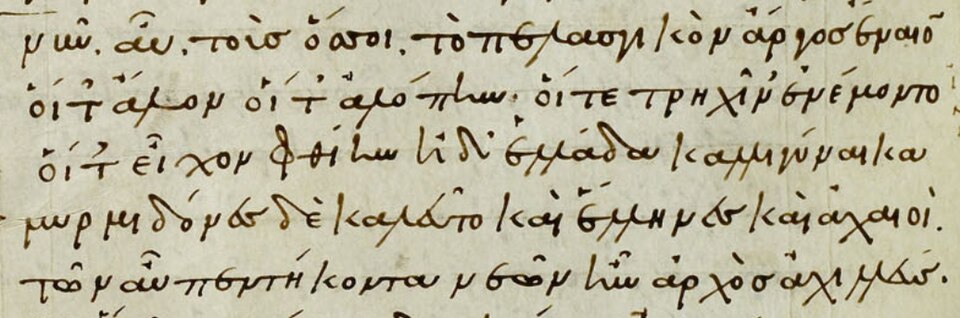 νῦν. αὖ. τοῖς ὅσοι. τὸ πελασγικὸν ἄργος ἔναιον
οἵ τ' ἄλον οἵ τ' ἀλόπην. οἵ τε τρηχῖν' ἐνέμοντο
οἵ τ' εἶχον φθίην ἠδ' ἑλλάδα καλλιγύναικα
μυρμιδόνες δὲ καλεῦντο καὶ ἕλληνες καὶ ἀχαιοί.
τῶν αὖ πεντήκοντα νεῶν ἦν ἀρχὸς ἀχιλλεύς.